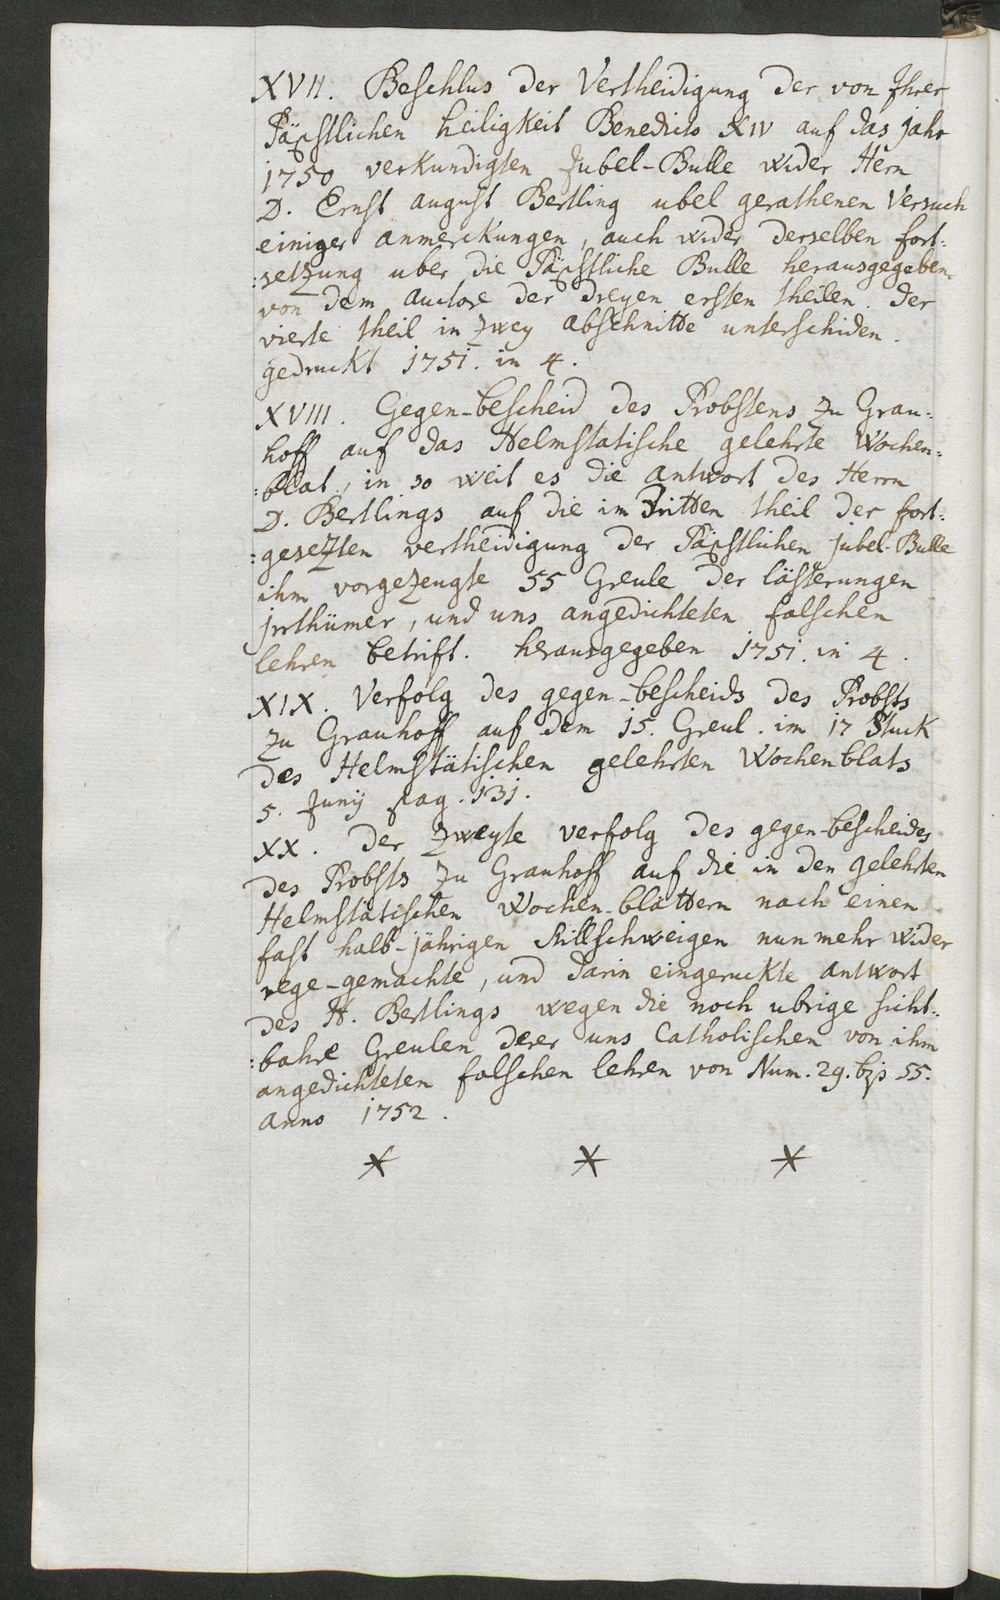 XVII. Beschlus der Vertheidigung der von Ihrer
Päpstlichen heiligkeit Benedicts XIV auf das jahr
1750 verkundigten Jubel-Bulle wider Hern
D. Ernst august Bertling ubel gerathenen Versuch
einiger anmerckungen, auch wider derselben fort:
:setzung uber die Päpstliche Bulle herausgegeben
von dem auctore der dreyen ersten theilen. der
vierte theil in zwey abschnitte unterschiden.
gedruckt 1751. in 4.
XVIII. Gegen-bescheid des Probstens zu Grau:
hoff auf das Helmstatische gelehrte Wochen:
:blat, in so weit es die antwort des Herrn
D. Bertlings auf die im dritten theil der fort:
:gesezten vertheidigung der Päpstlichen jubel-Bulle
ihm vorgezeugte 55 Greule der lästerungen
jrrthümer, und uns angedichteten falschen
lehren betrift. herausgegeben 1751. in 4.
XIX. Verfolg des gegen-bescheids des Probsts
zu Grauhoff auf dem 15. Greul. im 17 Stuck
des Helmstätischen gelehrten Wochenblats
5. Junij pag. 131.
XX. der zweyte verfolg des gegen-bescheides
des Probsts zu Grauhoff auf die in den gelehrten
Helmstätischen Wochen-blättern nach einen
fast halb-jährigen stillschweigen nunmehr wider
rege-gemachte, und darin eingeruckte antwort
des H. Bertlings wegen die noch ubrige sicht:
:bahre Greulen derer uns Catholischen von ihm
angedichteten falschen lehren von Num. 29. bjs 55.
anno 1752.
* * *